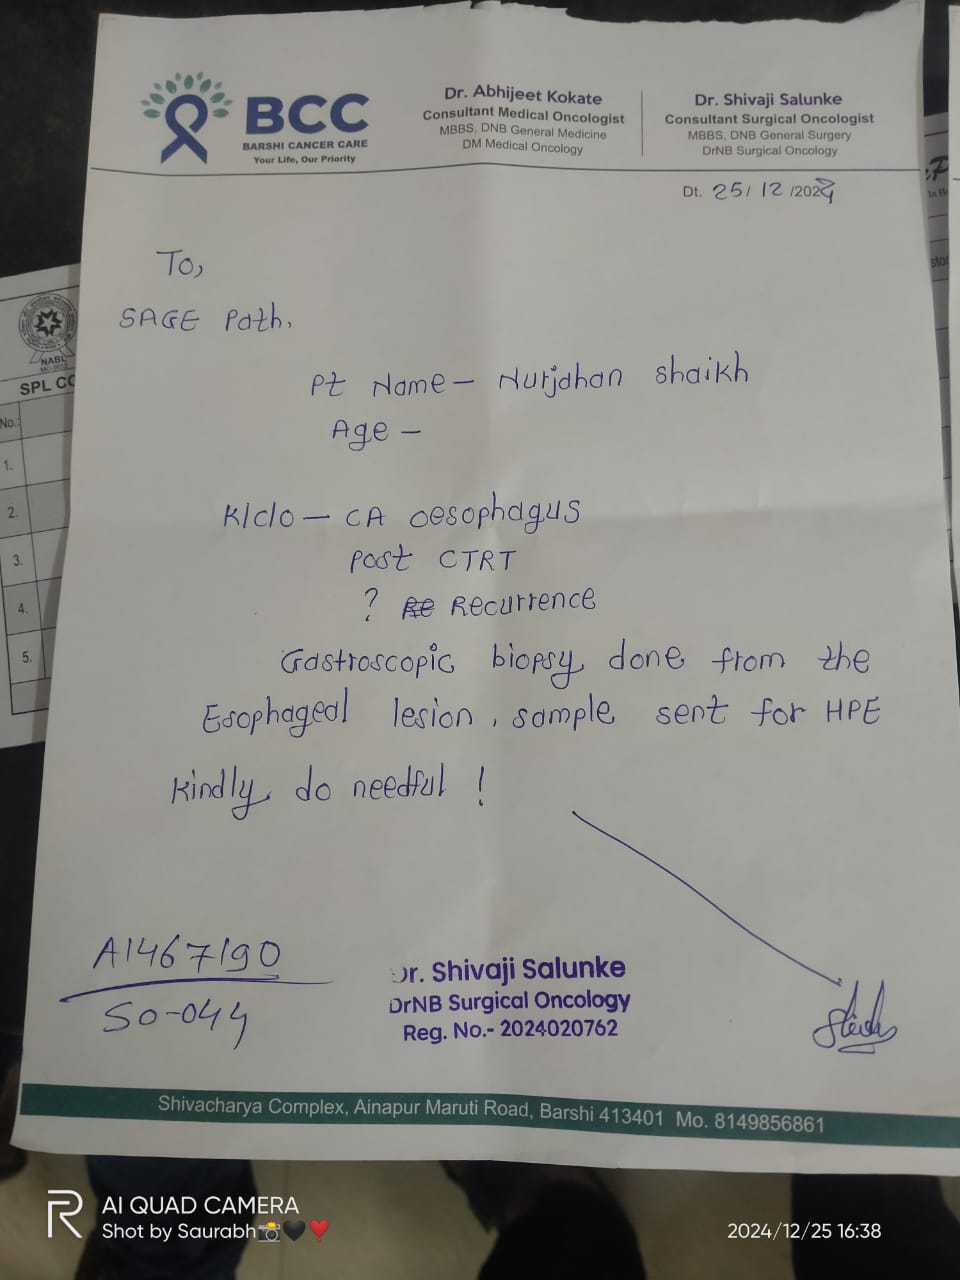 BCC
BARSHI CANCER CARE
Your Life, Our Priority
Dr. Abhijeet Kokate
Consultant Medical Oncologist
MBBS, DNB General Medicine
DM Medical Oncology
Dr. Shivaji Salunke
Consultant Surgical Oncologist
MBBS, DNB General Surgery
DrNB Surgical Oncology
Dt. 25/12/2024
To,
SAGE Path.
Pt Name - Nurjahan Shaikh
Age -
K/c/o - CA oesophagus
Post CTRT
? Recurrence
Gastroscopic biopsy done from the
Esophageal lesion, sample sent for HPE
Kindly do needful !
A1467190
SO-044
Dr. Shivaji Salunke
DrNB Surgical Oncology
Reg. No.- 2024020762
Shivacharya Complex, Ainapur Maruti Road, Barshi 413401 Mo. 8149856861
NABL
SPL CO
No.:
1.
2.
3.
4.
5.
AI QUAD CAMERA
Shot by Saurabh📸🖤❣️
2024/12/25 16:38